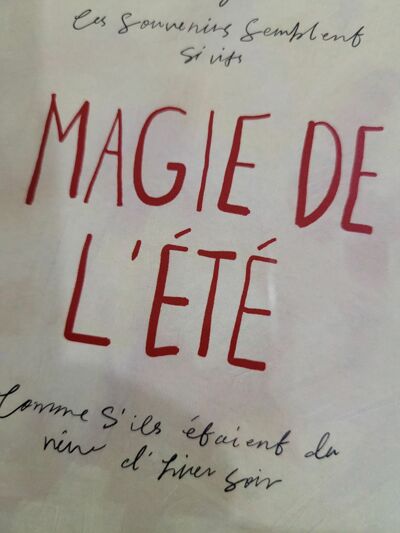 Les souvenirs semblent
si vifs
MAGIE DE
L'ÉTÉ
Comme s'ils étaient du
d'hiver soir